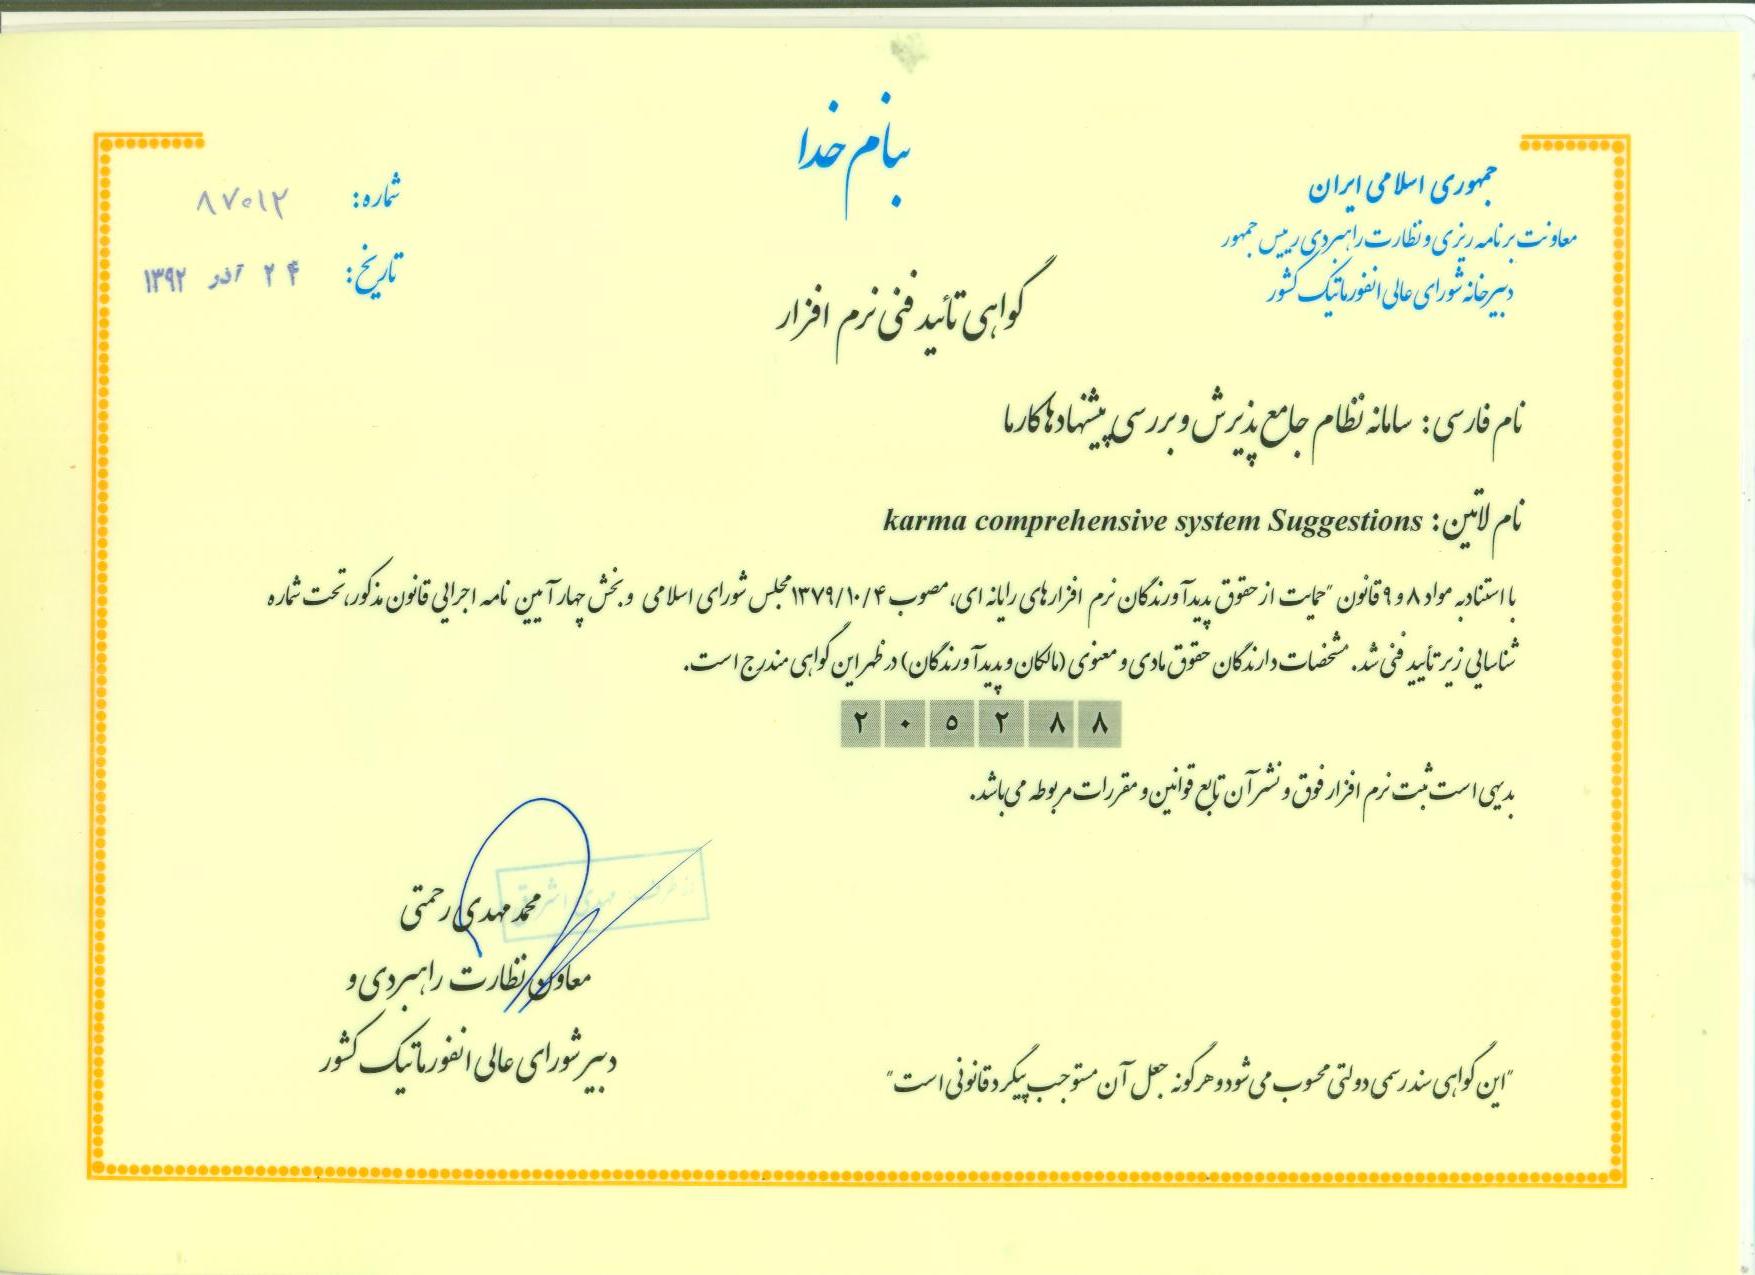 بنام خدا
جمهوری اسلامی ایران
معاونت برنامه ریزی و نظارت راهبردی رییس جمهور
دبیرخانه شورای عالی انفورماتیک کشور
شماره: ۸۷۰۱۲
تاریخ: ۲۴ آذر ۱۳۹۲
گواهی تائید فنی نرم افزار
نام فارسی: سامانه نظام جامع پذیرش و بررسی پیشنهادها کارما
نام لاتین: karma comprehensive system Suggestions
با استناد به مواد ۸ و ۹ قانون "حمایت از حقوق پدیدآورندگان نرم افزارهای رایانه ای، مصوب ۱۳۷۹/۱۰/۴ مجلس شورای اسلامی و بخش چهار آیین نامه اجرایی قانون مذکور، تحت شماره
شناسایی زیر تأیید فنی شد. مشخصات دارندگان حقوق مادی و معنوی (مالکان و پدیدآورندگان) در ظهر این گواهی مندرج است.
۲۰۵۲۸۸
بدیهی است ثبت نرم افزار فوق و نشر آن تابع قوانین و مقررات مربوطه می باشد.
محمد مهدی رحمتی
معاون نظارت راهبردی و
دبیر شورای عالی انفورماتیک کشور
"این گواهی سند رسمی دولتی محسوب می شود و هرگونه جعل آن مستوجب پیگرد قانونی است"